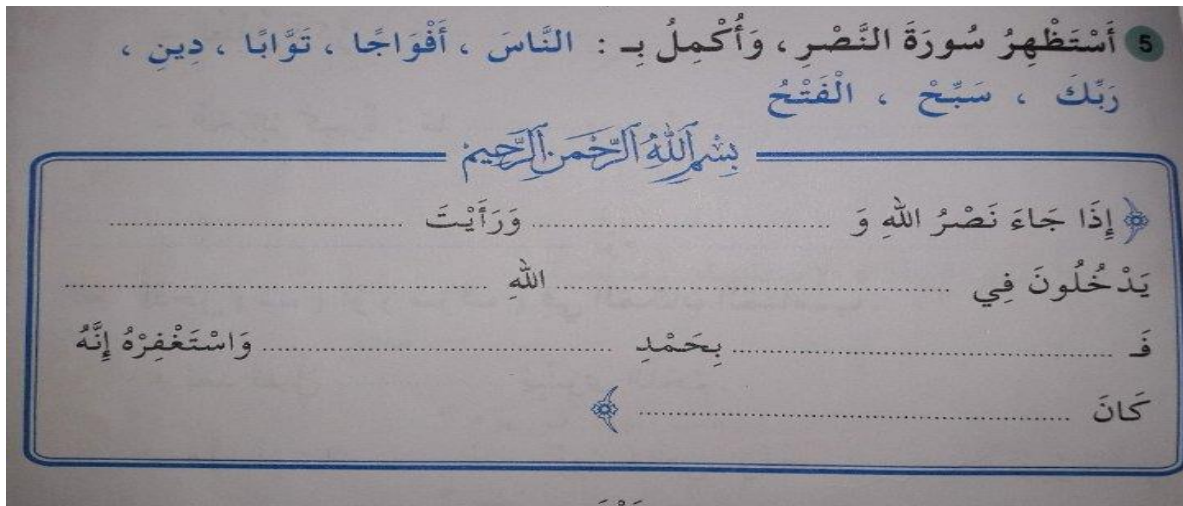 5 أَسْتَظْهِرُ سُورَةَ النَّصْرِ ، وَأُكْمِلُ بِـ : النَّاسَ ، أَفْوَاجًا ، تَوَّابًا ، دِينِ ،
رَبِّكَ ، سَبِّحْ ، الْفَتْحُ
بِسْمِ اللَّهِ الرَّحْمَنِ الرَّحِيمِ
﴿ إِذَا جَاءَ نَصْرُ اللهِ وَ ........................ وَرَأَيْتَ ........................
يَدْخُلُونَ فِي ........................ اللهِ ........................
فَـ ........................ بِحَمْدِ ........................ وَاسْتَغْفِرْهُ إِنَّهُ
كَانَ ........................ ﴾